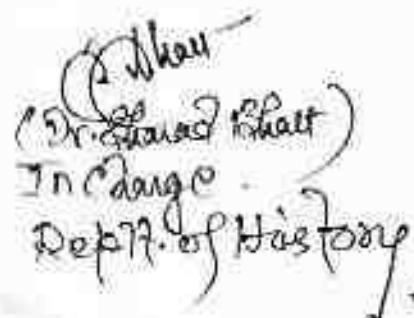 Bhatt
(Dr. Sharad Bhatt)
In Charge.
Deptt. of History